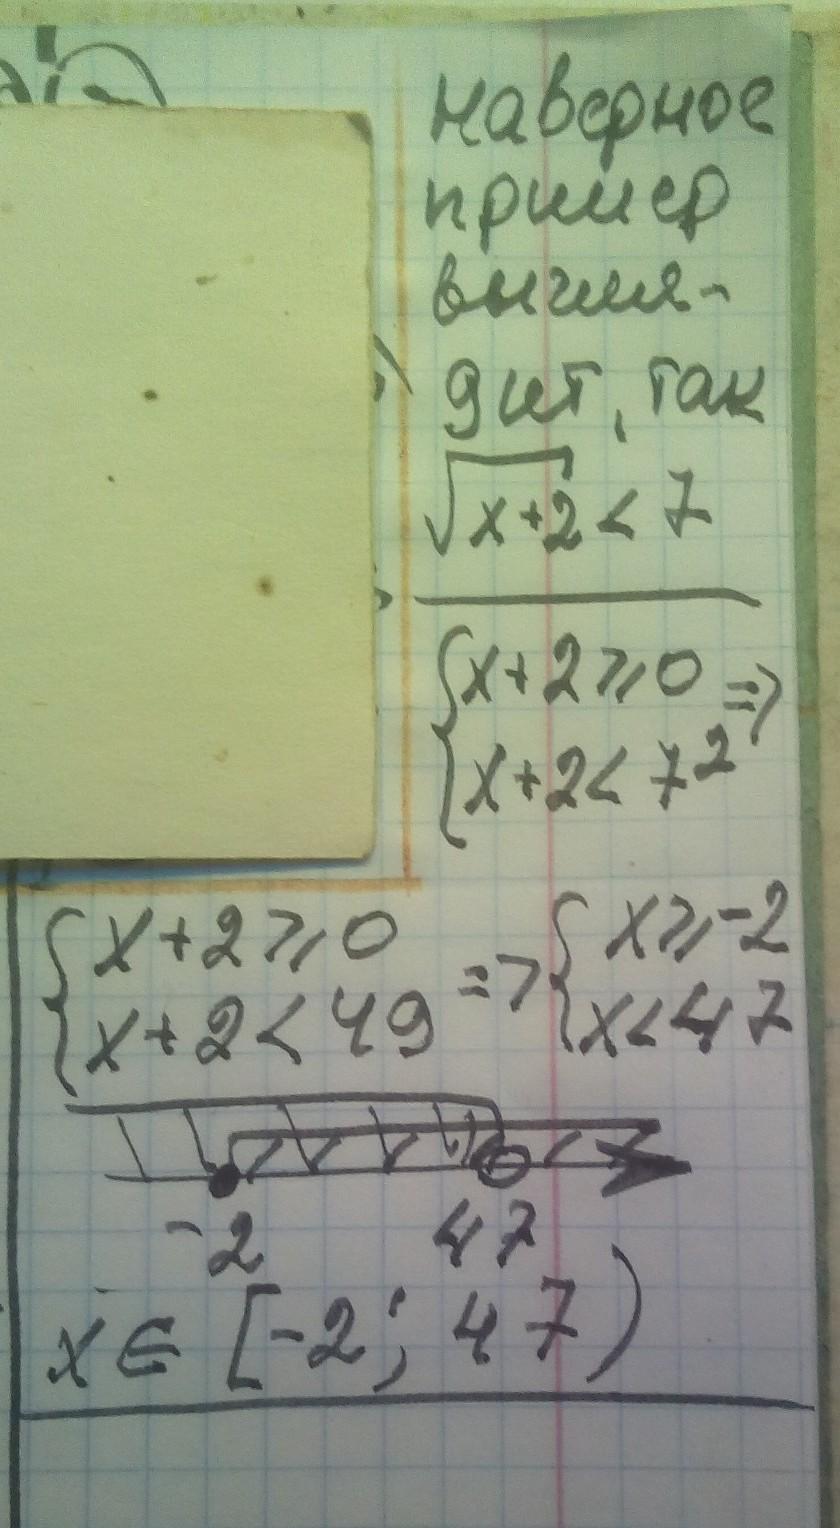 наверное
пример
выгля-
дит, так
√x+2 < 7
{x+2 ⩾ 0 =>
{x+2 < 7²
{x+2 ⩾ 0 => {x ⩾ -2
{x+2 < 49 {x < 47
-2 47
x ∈ [-2; 47)